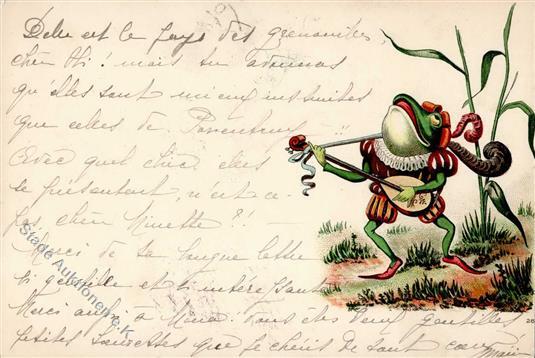 Delle est le pays des grenouilles,
cher Obi! mais tu avoueras
qu'elles sont mieux instruites
que celles de Porrentruy
Avec quel chic elles
se présentent, n'est-ce-
pas, cher Minette?!
Merci de ta longue lettre
si gentille et si intéressante
Merci aussi à Mina. Vous êtes deux gentilles
petites que je chéris de tout cœur
Stade Auktionen e.K.
28